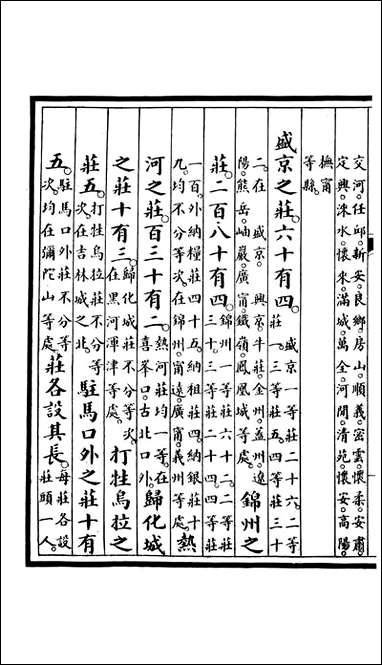 交河。任邱。新安。良鄉。房山。順義。密雲。懷柔。安肅。
定興。淶水。懷來。滿城。萬全。河間。清苑。懷安。高陽。
撫甯
等縣。
盛京之莊。六十有四。盛京一等莊二十六。二等
莊一。三等莊五。四等莊三十
二。在 盛京。興京。牛莊。金州。蓋州。遼
陽。熊岳。岫巖。廣甯。鐵嶺。鳳凰城等處。錦州之
莊。二百八十有四。錦州一等莊六十二。二等莊
三十。三等莊二十四。四等莊
一百。外納糧莊四十五。納租莊四。納銀莊十
九。均不分等次。在錦州。甯遠。廣甯。義州等處。熱
河之莊。百三十有二。熱河莊均一等。在
喜峯口。古北口外。歸化城
之莊十有三。歸化城莊不分等次。
在黑河渾津等處。打牲烏拉之
莊五。打牲烏拉莊不分等
次。在吉林城之北。駐馬口外之莊十有
五。駐馬口外莊不分等
次。均在彌陀山等處。莊各設其長。每莊各設
莊頭一人。